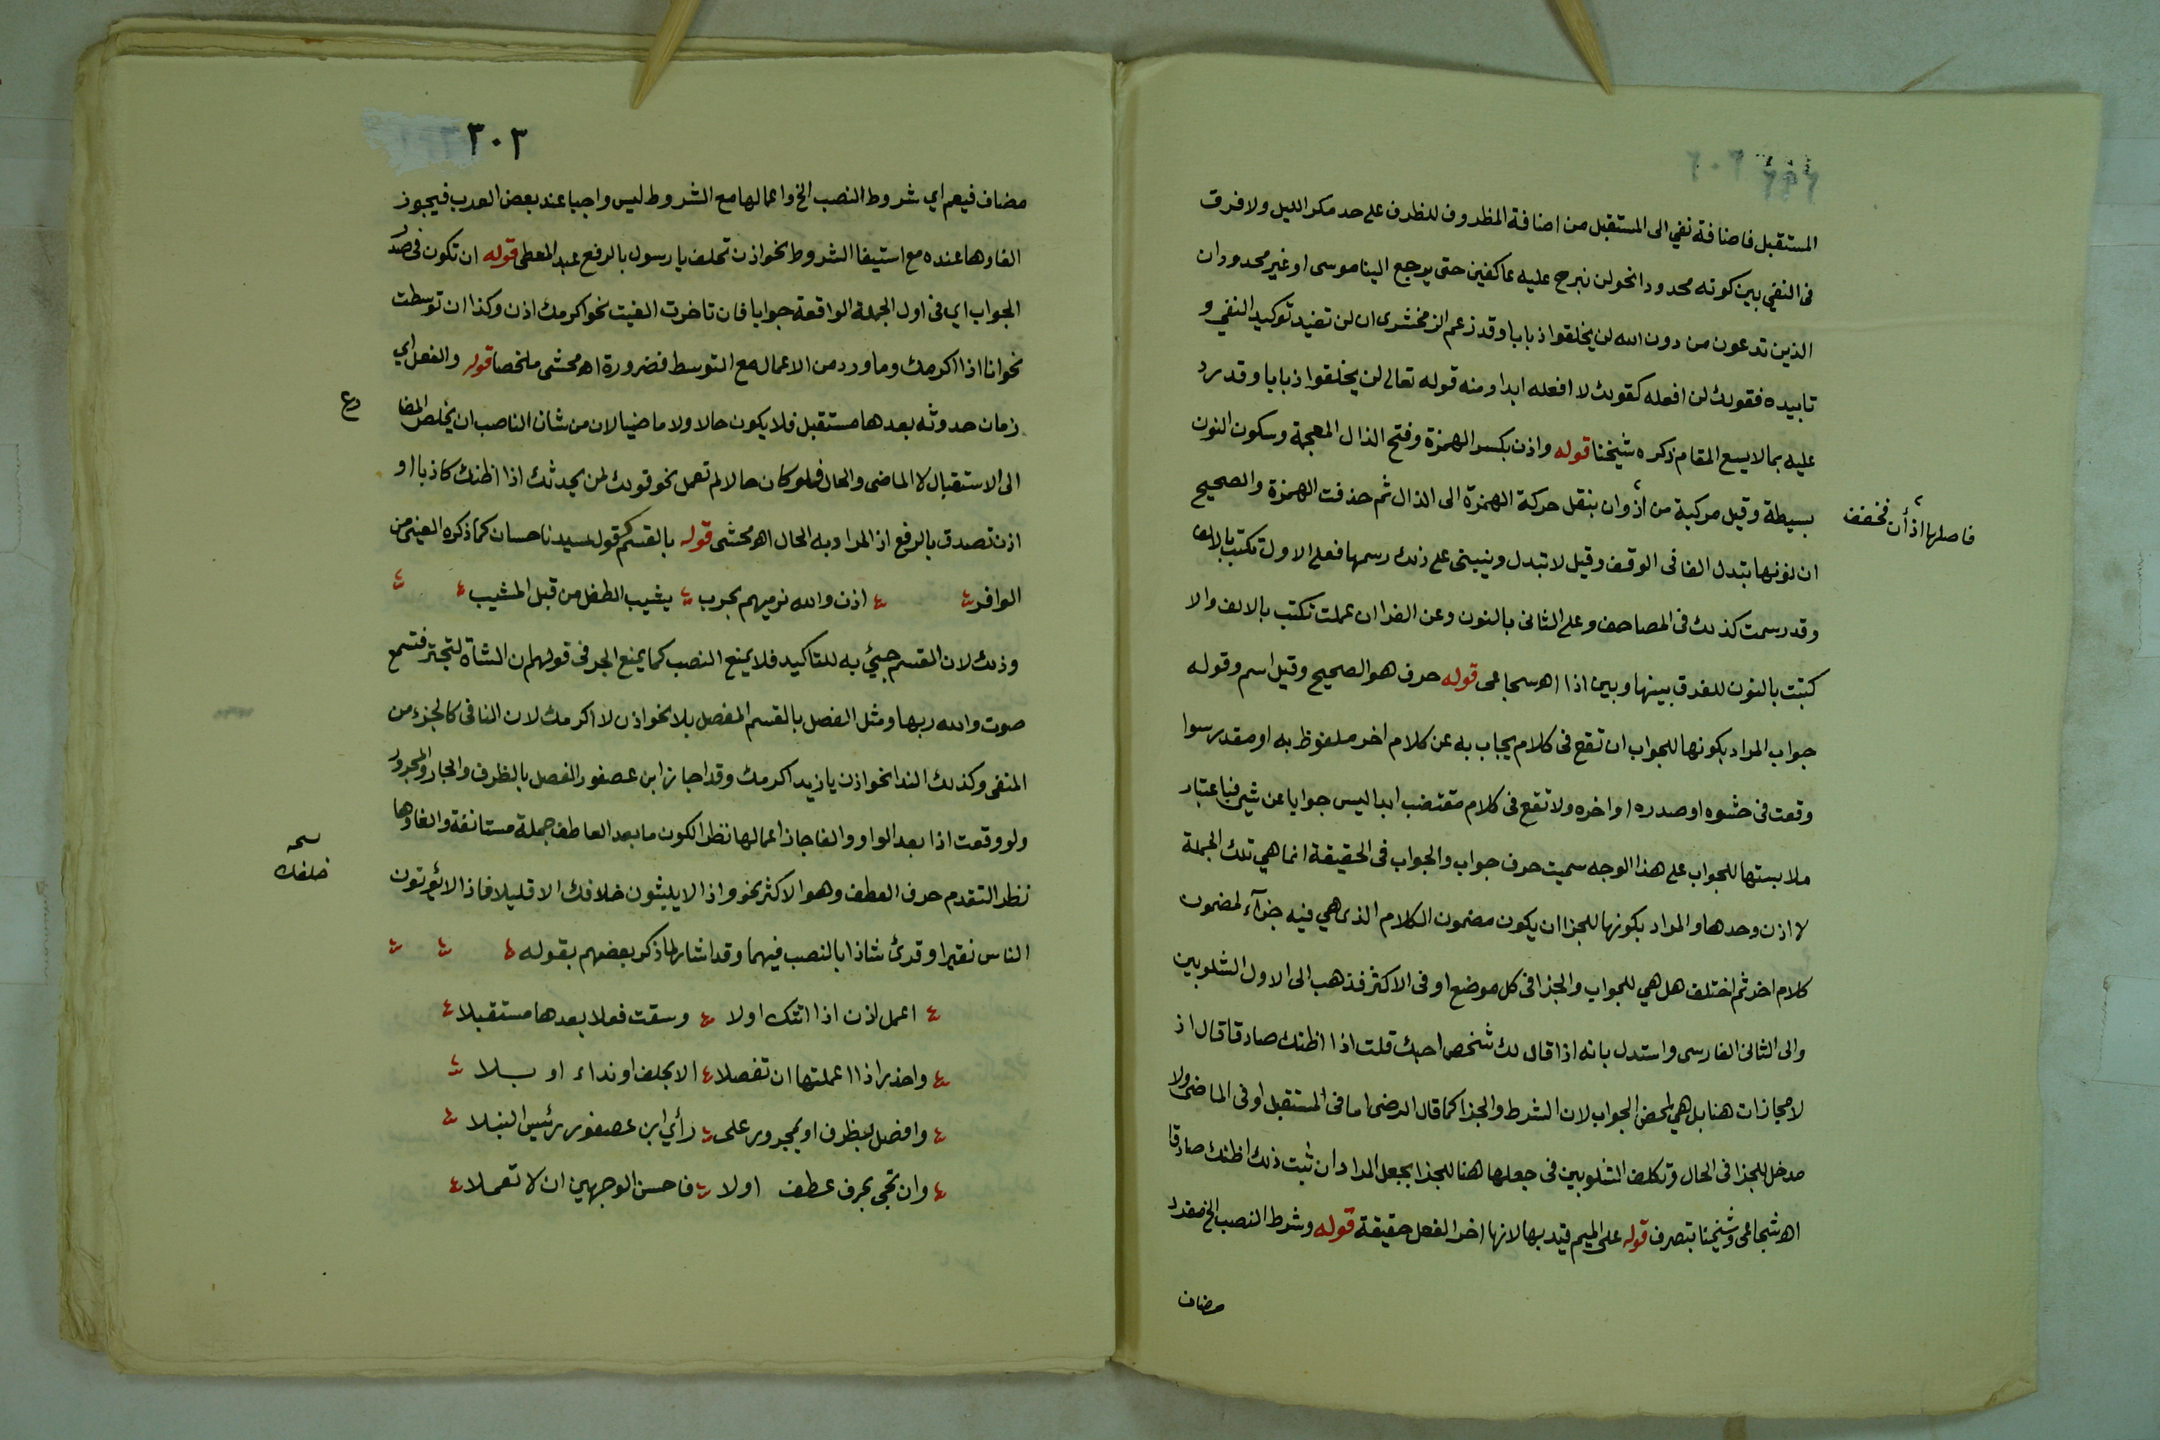 المستقبل فاضافة نفي الى المستقبل من اضافة المظروف للظرف على حد مكر الليل ولا فرق
فى النفي بين كونه محدودا نحو لن نبرح عليه عاكفين حتى يرجع الينا موسى او غير محدود ان
الذين تدعون من دون الله لن يخلقوا ذبابا وقد زعم الزمخشرى ان لن تفيد توكيد النفي و
تابيده فقولك لن افعله كقولك لا افعله ابدا ومنه قوله تعالى لن يخلقوا ذبابا وقد رد
عليه بما لا يسع المقام ذكره شيخنا قوله واذن بكسر الهمزة وفتح الذال المعجمة وسكون النون
بسيطة وقيل مركبة من اذ وان بنقل حركة الهمزة الى الذال ثم حذفت الهمزة والصحيح
فاصلها اذ أن فخفف
ان نونها تبدل الفا فى الوقف وقيل لا تبدل وينبنى على ذلك رسمها فعلى الاول تكتب بالالف
وقد رسمت كذلك فى المصاحف وعلى الثانى بالنون وعن الفرا ان عملت تكتب بالالف والا
كتبت بالنون للفرق بينها وبين اذا اهـ سجاعى قوله حرف هو الصحيح وقيل اسم وقوله
جواب المراد بكونها للجواب ان تقع فى كلام يجاب به عن كلام اخر ملفوظ به او مقدر سوا
وقعت فى حشوه او صدره او اخره ولا تقع فى كلام مقتضب ابدا ليس جوابا عن شي فباعتبار
ملابستها للجواب على هذا الوجه سميت حرف جواب والجواب فى الحقيقة انما هي تلك الجملة
لا اذن وحدها والمراد بكونها للجزا ان يكون مضمون الكلام الذى هي فيه جزآء لمضمون
كلام اخر ثم اختلف هل هي للجواب والجزا فى كل موضع او فى الاكثر فذهب الى الاول الشلوبين
والى الثانى الفارسى واستدل بانه اذا قال لك شخص احبك قلت اذا اظنك صادقا قال اذ
لا مجازات هنا بل هي لمحض الجواب لان الشرط والجزا كما قال الرضى اما فى المستقبل او فى الماضى ولا
مدخل للجزا فى الحال وتكلف الشلوبين فى جعلها هنا للجزا بجعل المراد ان ثبت ذلك اظنك صادقا
اهـ شجاعى وشيخنا بتصرف قوله على الميم قيد بها لانها اخر الفعل حقيقة قوله وشرط النصب الخ مفرد
مضاف
٣٠٣
مضاف فيعم اي شروط النصب الخ واعمالها مع الشروط ليس واجبا عند بعض العرب فيجوز
الغاوها عنده مع استيفا الشروط نحو اذن تحلف يا رسول بالرفع عبد المعطى قوله ان تكون فى صدر
الجواب اي فى اول الجملة الواقعة جوابا فان تاخرت الغيت نحو اكرمك اذن وكذا ان توسطت
نحو انا اذا اكرمك وما ورد من الاعمال مع التوسط فضرورة اهـ محشى ملخصا قوله والفعل اي
زمان حدوثه بعدها مستقبل فلا يكون حالا ولا ماضيا لان من شان الناصب ان يخلص المضا
رع
الى الاستقبال لا الماضى والحال فلو كان حالا لم تعمل نحو قولك لمن يحدثك اذا اظنك كاذبا او
اذن تصدق بالرفع اذ المراد به الحال اهـ محشى قوله بالقسم كقول سيدنا حسان كما ذكره العينى من
الوافر اذن والله نرميهم بحرب يشيب الطفل من قبل المشيب
وذلك لان القسم جيئ به للتاكيد فلا يمنع النصب كما يمنع الجر فى قولهم ان الشاة لتجتر فتسمع
صوت والله ربها ومثل الفصل بالقسم الفصل بلا نحو اذن لا اكرمك لان النافى كالجزء من
المنفى وكذلك الندا نحو اذن يا زيد اكرمك وقد اجاز ابن عصفور الفصل بالظرف والجار والمجرور
ولو وقعت اذا بعد الواو والفا جاز اعمالها نظرا لكون ما بعد العاطف جملة مستانفة والغاوها
نظرا لتقدم حرف العطف وهو الاكثر نحو واذا لا يلبثون خلافك الا قليلا فاذا لا يؤتون
نسخه
خلفك
الناس نقيرا وقرئ شاذا بالنصب فيهما وقد اشار لما ذكر بعضهم بقوله
اعمل اذن اذا اتتك اولا وسقت فعلا بعدها مستقبلا
واحذر اذا اعملتها ان تفصلا الا بحلف او نداء او بلا
وافصل بظرف او بمجرور على رأي ابن عصفور رئيس النبلا
وان تجى بحرف عطف اولا فاحسن الوجهين ان لا تعملا